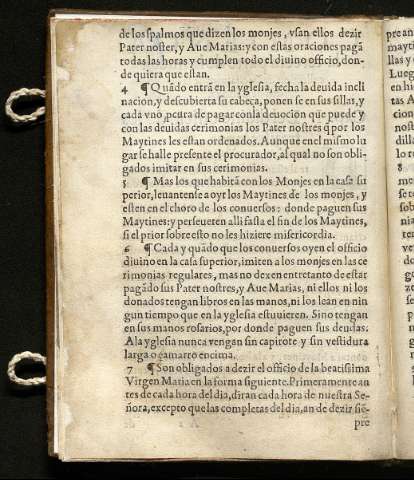 de los psalmos que dizen los monjes, vsan ellos dezir
Pater noster, y Aue Marias: y con estas oraciones pagã
todas las horas y cumplen todo el diuino officio, don-
de quiera que estan.
4 ¶ Quãdo entrã en la yglesia, fecha la deuida incli
nacion, y descubierta su cabeça, ponen se en sus sillas, y
cada vno, pcura de pagar con la deuocion que puede y
con las deuidas cerimonias los Pater nostres q̃ por los
Maytines les estan ordenados. Aunque en el mismo lu
gar se halle presente el procurador, al qual no son obli-
gados imitar en sus cerimonias.
5 ¶ Mas los que habitã con los Monjes en la casa su
perior, leuantense a oyr los Maytines de los monjes, y
esten en el choro de los conuersos: donde paguen sus
Maytines: y perseueren alli fasta el fin de los Maytines,
si el prior sobre esto no les hiziere misericordia.
6 ¶ Cada y quãdo que los conuersos oyen el officio
diuino en la casa superior, imiten a los monjes en las ce
rimonias regulares, mas no dexen entretanto de estar
pagãdo sus Pater nostres, y Aue Marias, ni ellos ni los
donados tengan libros en las manos, ni los lean en nin
gun tiempo que en la yglesia estuuieren. Sino tengan
en sus manos rosarios, por donde paguen sus deudas.
A la yglesia nunca vengan sin capirote y sin vestidura
larga o çamarro encima.
7 ¶ Son obligados a dezir el officio de la beatissima
Virgen Maria en la forma siguiente. Primeramente an
tes de cada hora del dia, diran cada hora de nuestra Se-
ñora, excepto que las completas del dia, an de dezir siẽ-
pre